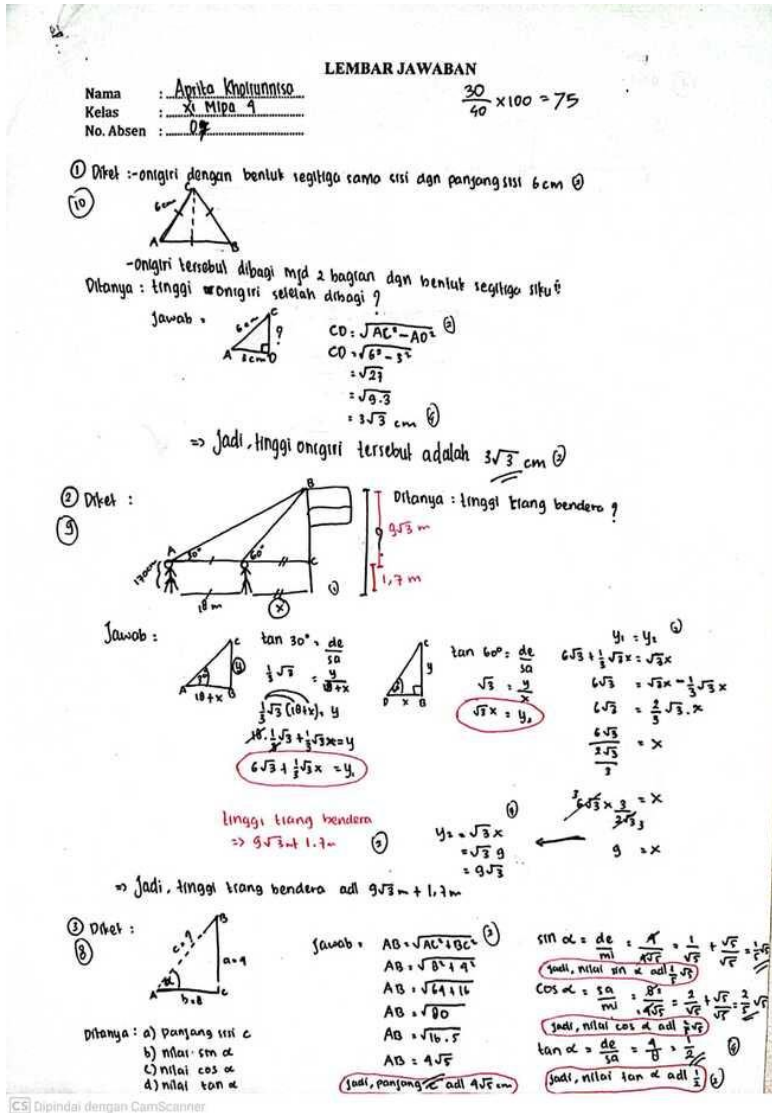 LEMBAR JAWABAN
Nama : Aprita Khoirunnisa
Kelas : XI Mipa 4
No. Absen : 07
30/40 × 100 = 75
① Diket : -onigiri dengan bentuk segitiga sama sisi dgn panjang sisi 6 cm ②
⑩
C
6cm
A B
-onigiri tersebut dibagi mjd 2 bagian dgn bentuk segitiga siku²
Ditanya : tinggi onigiri setelah dibagi ?
Jawab :
C
6cm ?
A 3cm D
CD = √AC² - AD² ②
CD = √6² - 3²
= √27
= √9.3
= 3√3 cm ④
=> Jadi, tinggi onigiri tersebut adalah 3√3 cm ②
② Diket :
⑨
B
A 30° 60° C
170cm
18 m x
?
9√3 m
1,7 m
Ditanya : tinggi tiang bendera ?
Jawab :
C
30° y
A 18+x B
tan 30° = de/sa
1/3 √3 = y/18+x
1/3 √3 (18+x) = y
18. 1/3 √3 + 1/3 √3x = y
6√3 + 1/3 √3x = y₁
C
y
D x B
tan 60° = de/sa
√3 = y/x
√3x = y₂
y₁ = y₂
6√3 + 1/3 √3x = √3x
6√3 = √3x - 1/3 √3x
6√3 = 2/3 √3.x
6√3 / (2√3/3) = x
6√3 × 3/2√3 = x
9 = x
y₂ = √3x ④
= √3 9
= 9√3
tinggi tiang bendera
=> 9√3m + 1.7m ②
=> Jadi, tinggi tiang bendera adl 9√3 m + 1,7m
③ Diket :
⑧
B
c = ? a = 4
α
A b = 8 C
Ditanya : a) Panjang sisi c
b) nilai sin α
c) nilai cos α
d) nilai tan α
Jawab : AB = √AC² + BC² ②
AB = √8² + 4²
AB = √64 + 16
AB = √80
AB = √16.5
AB = 4√5
Jadi, panjang c adl 4√5 cm
sin α = de/mi = 4/4√5 = 1/√5 + √5/√5 = 1/5 √5
Jadi, nilai sin α adl 1/5 √5
cos α = sa/mi = 8/4√5 = 2/√5 + √5/√5 = 2/5 √5
Jadi, nilai cos α adl 2/5 √5
tan α = de/sa = 4/8 = 1/2 ④
Jadi, nilai tan α adl 1/2 ②
CS Dipindai dengan CamScanner